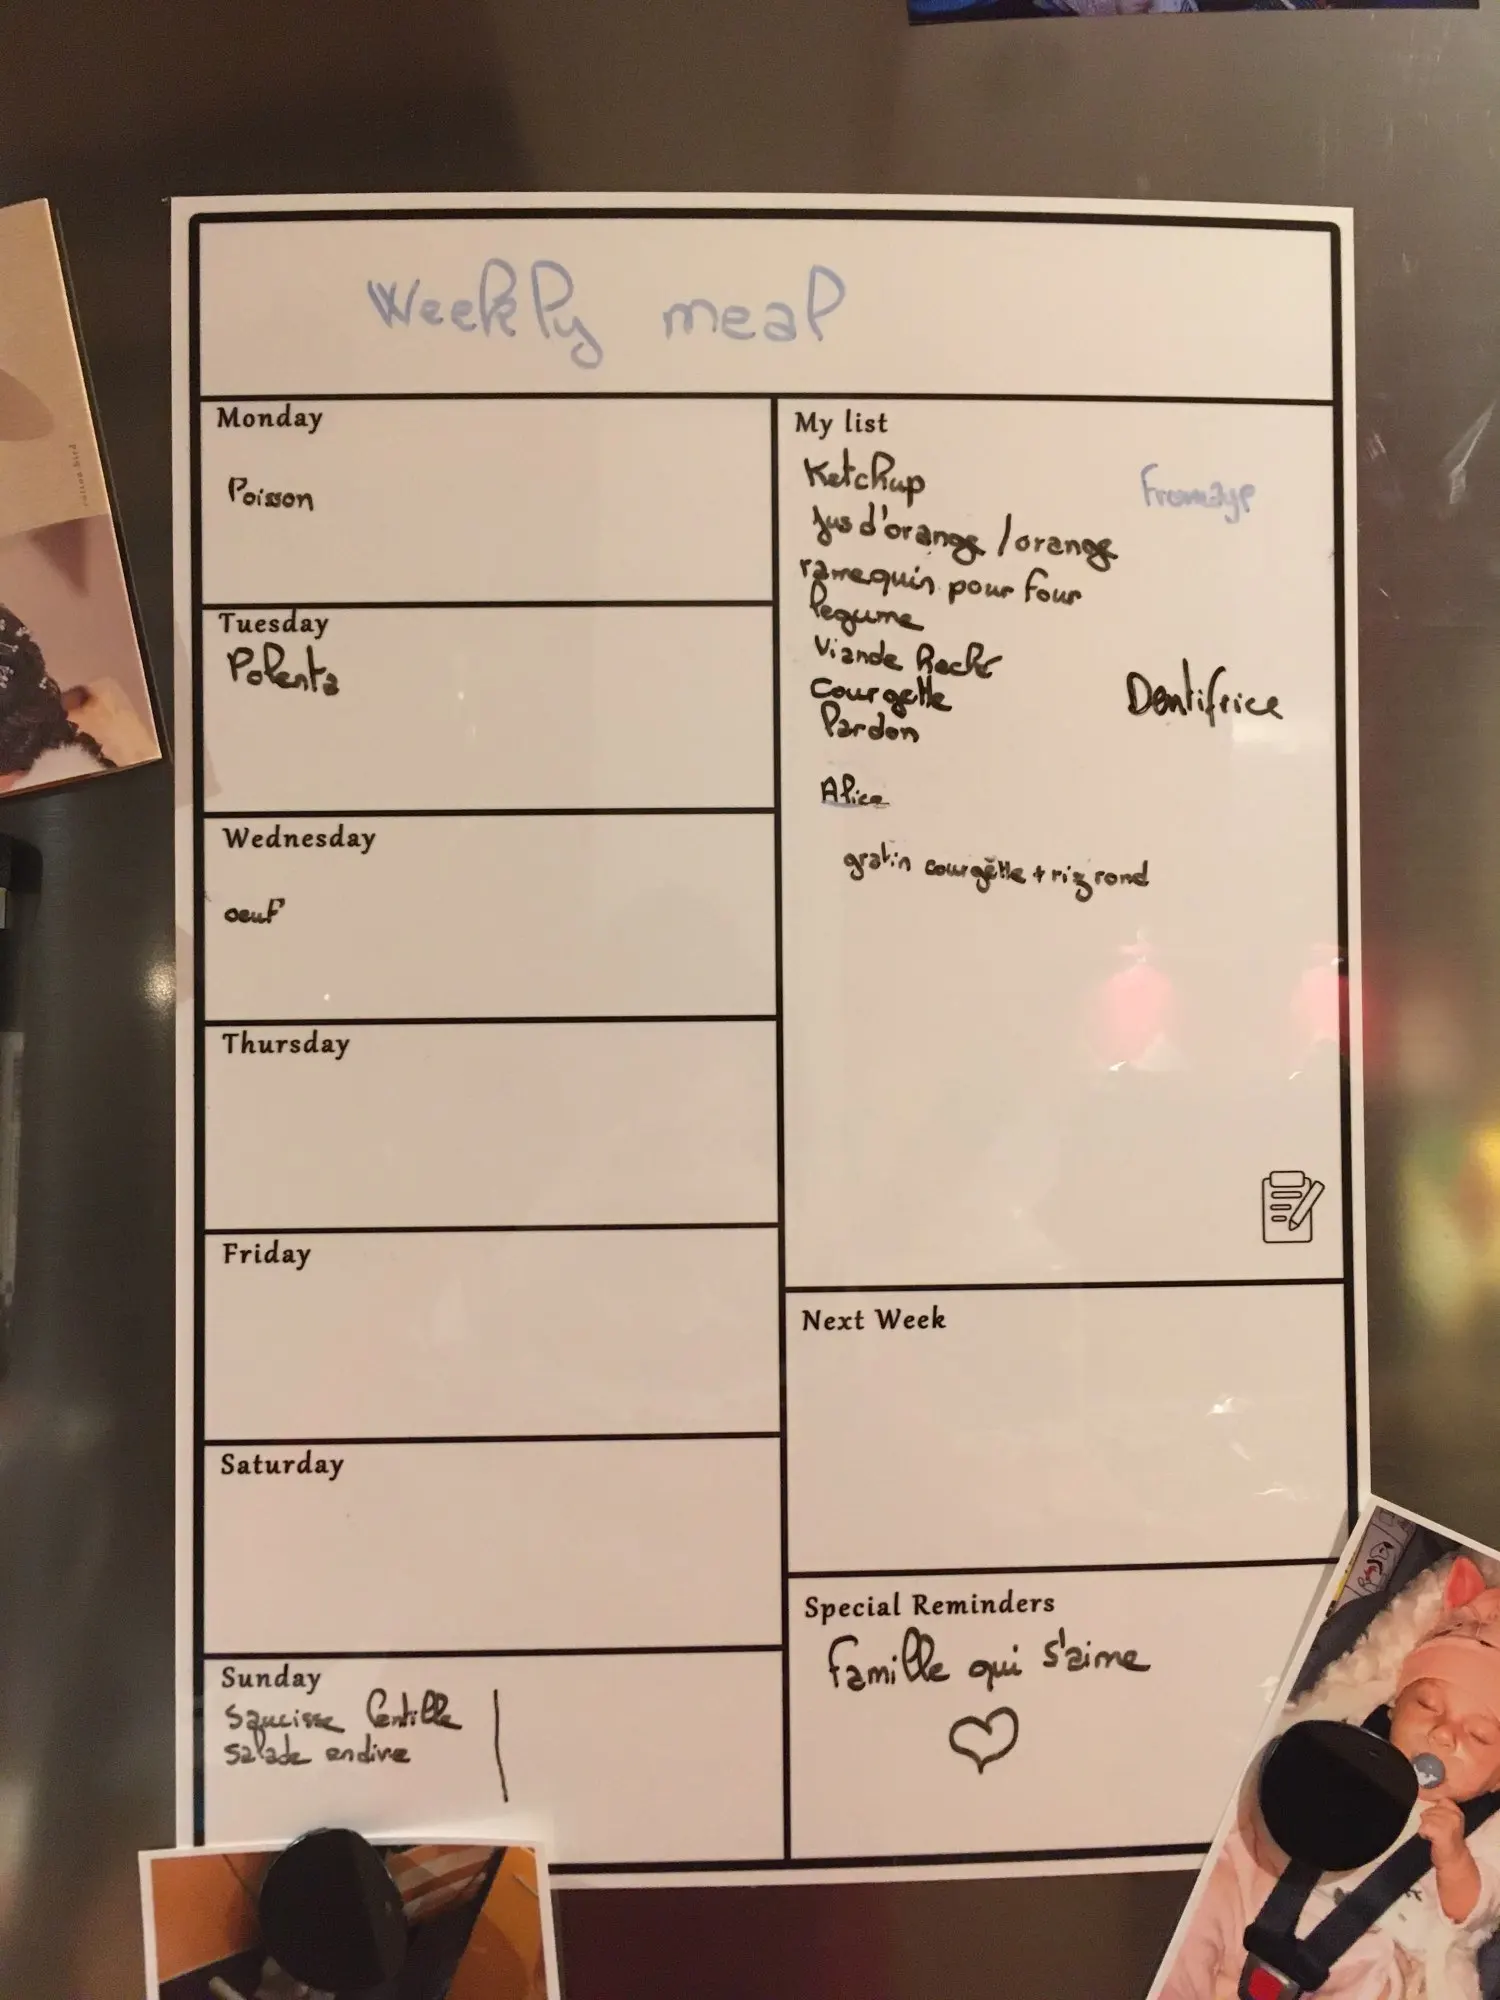 Weekly meal
Monday
Poisson
Tuesday
Polenta
Wednesday
oeuf
Thursday
Friday
Saturday
Sunday
Saucisse lentille
salade endive
My list
Ketchup
Fromage
Jus d'orange / orange
ramequin pour four
legume
Viande haché
Courgette
Dentifrice
lardon
Alice
gratin courgette + riz rond
Next Week
Special Reminders
famille qui s'aime